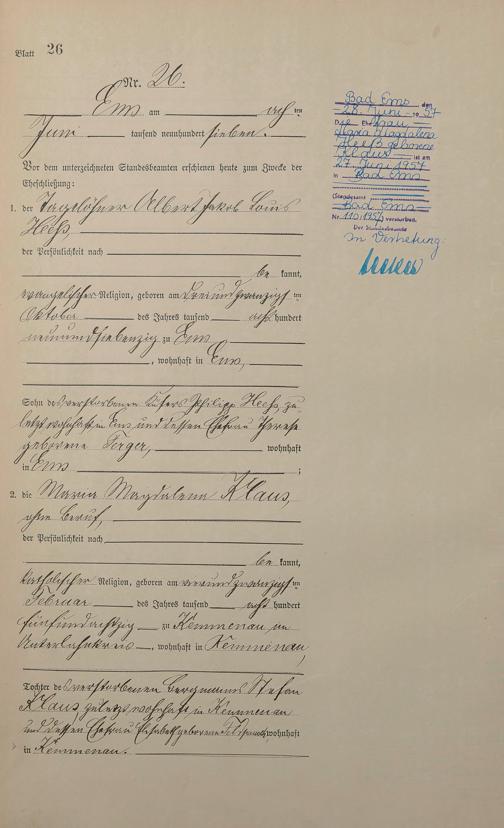 Blatt 26
Nr. 26.
Ems am achten
Juni tausend neunhundert sieben.
Vor dem unterzeichneten Standesbeamten erschienen heute zum Zwecke der
Eheschließung:
1. der Tagelöhner Albert Jakob Louis
Heeß,
der Persönlichkeit nach
be kannt,
evangelischer Religion, geboren am dreiundzwanzigsten
Oktober des Jahres tausend acht hundert
neunundsiebenzig zu Ems
, wohnhaft in Ems,
Sohn des verstorbenen Küfers Philipp Heeß, zu-
letzt wohnhaft in Ems und dessen Ehefrau Therese
geborene wohnhaft
in Ems ;
2. die Maria Magdalena Klaus,
ohne Beruf,
der Persönlichkeit nach
be kannt,
katholischer Religion, geboren am
Februar des Jahres tausend acht hundert
fünfundachtzig zu Kemmenau im
Unterlahnkreis, wohnhaft in Kemmenau,
Tochter des verstorbenen Bergmanns Stefan
Klaus zuletzt wohnhaft in Kemmenau
und dessen Ehefrau Elisabeth geborene wohnhaft
in Kemmenau.
Bad Ems, den
28. Juni 1957
Die Ehefrau
Maria Magdalena
Heeß geborene
Klaus ist am
27. Juni 1957
in Bad Ems
(Standesamt
Bad Ems
Nr. 110/1957) verstorben.
Der Standesbeamte
In Vertretung: